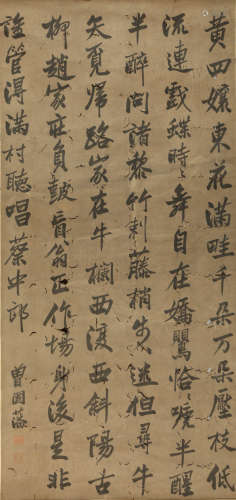 黄四孃東花滿畦千朶万朶壓枝低
流連戲蝶時々舞自在嬌鶯恰々嗁半醒
半醉問諸黎竹刺藤梢步々迷但尋牛
矢覓歸路家在牛欄西復西斜陽古
柳趙家莊負鼓盲翁正作場身後是非
誰管得滿村聽唱蔡中郎
曾国藩